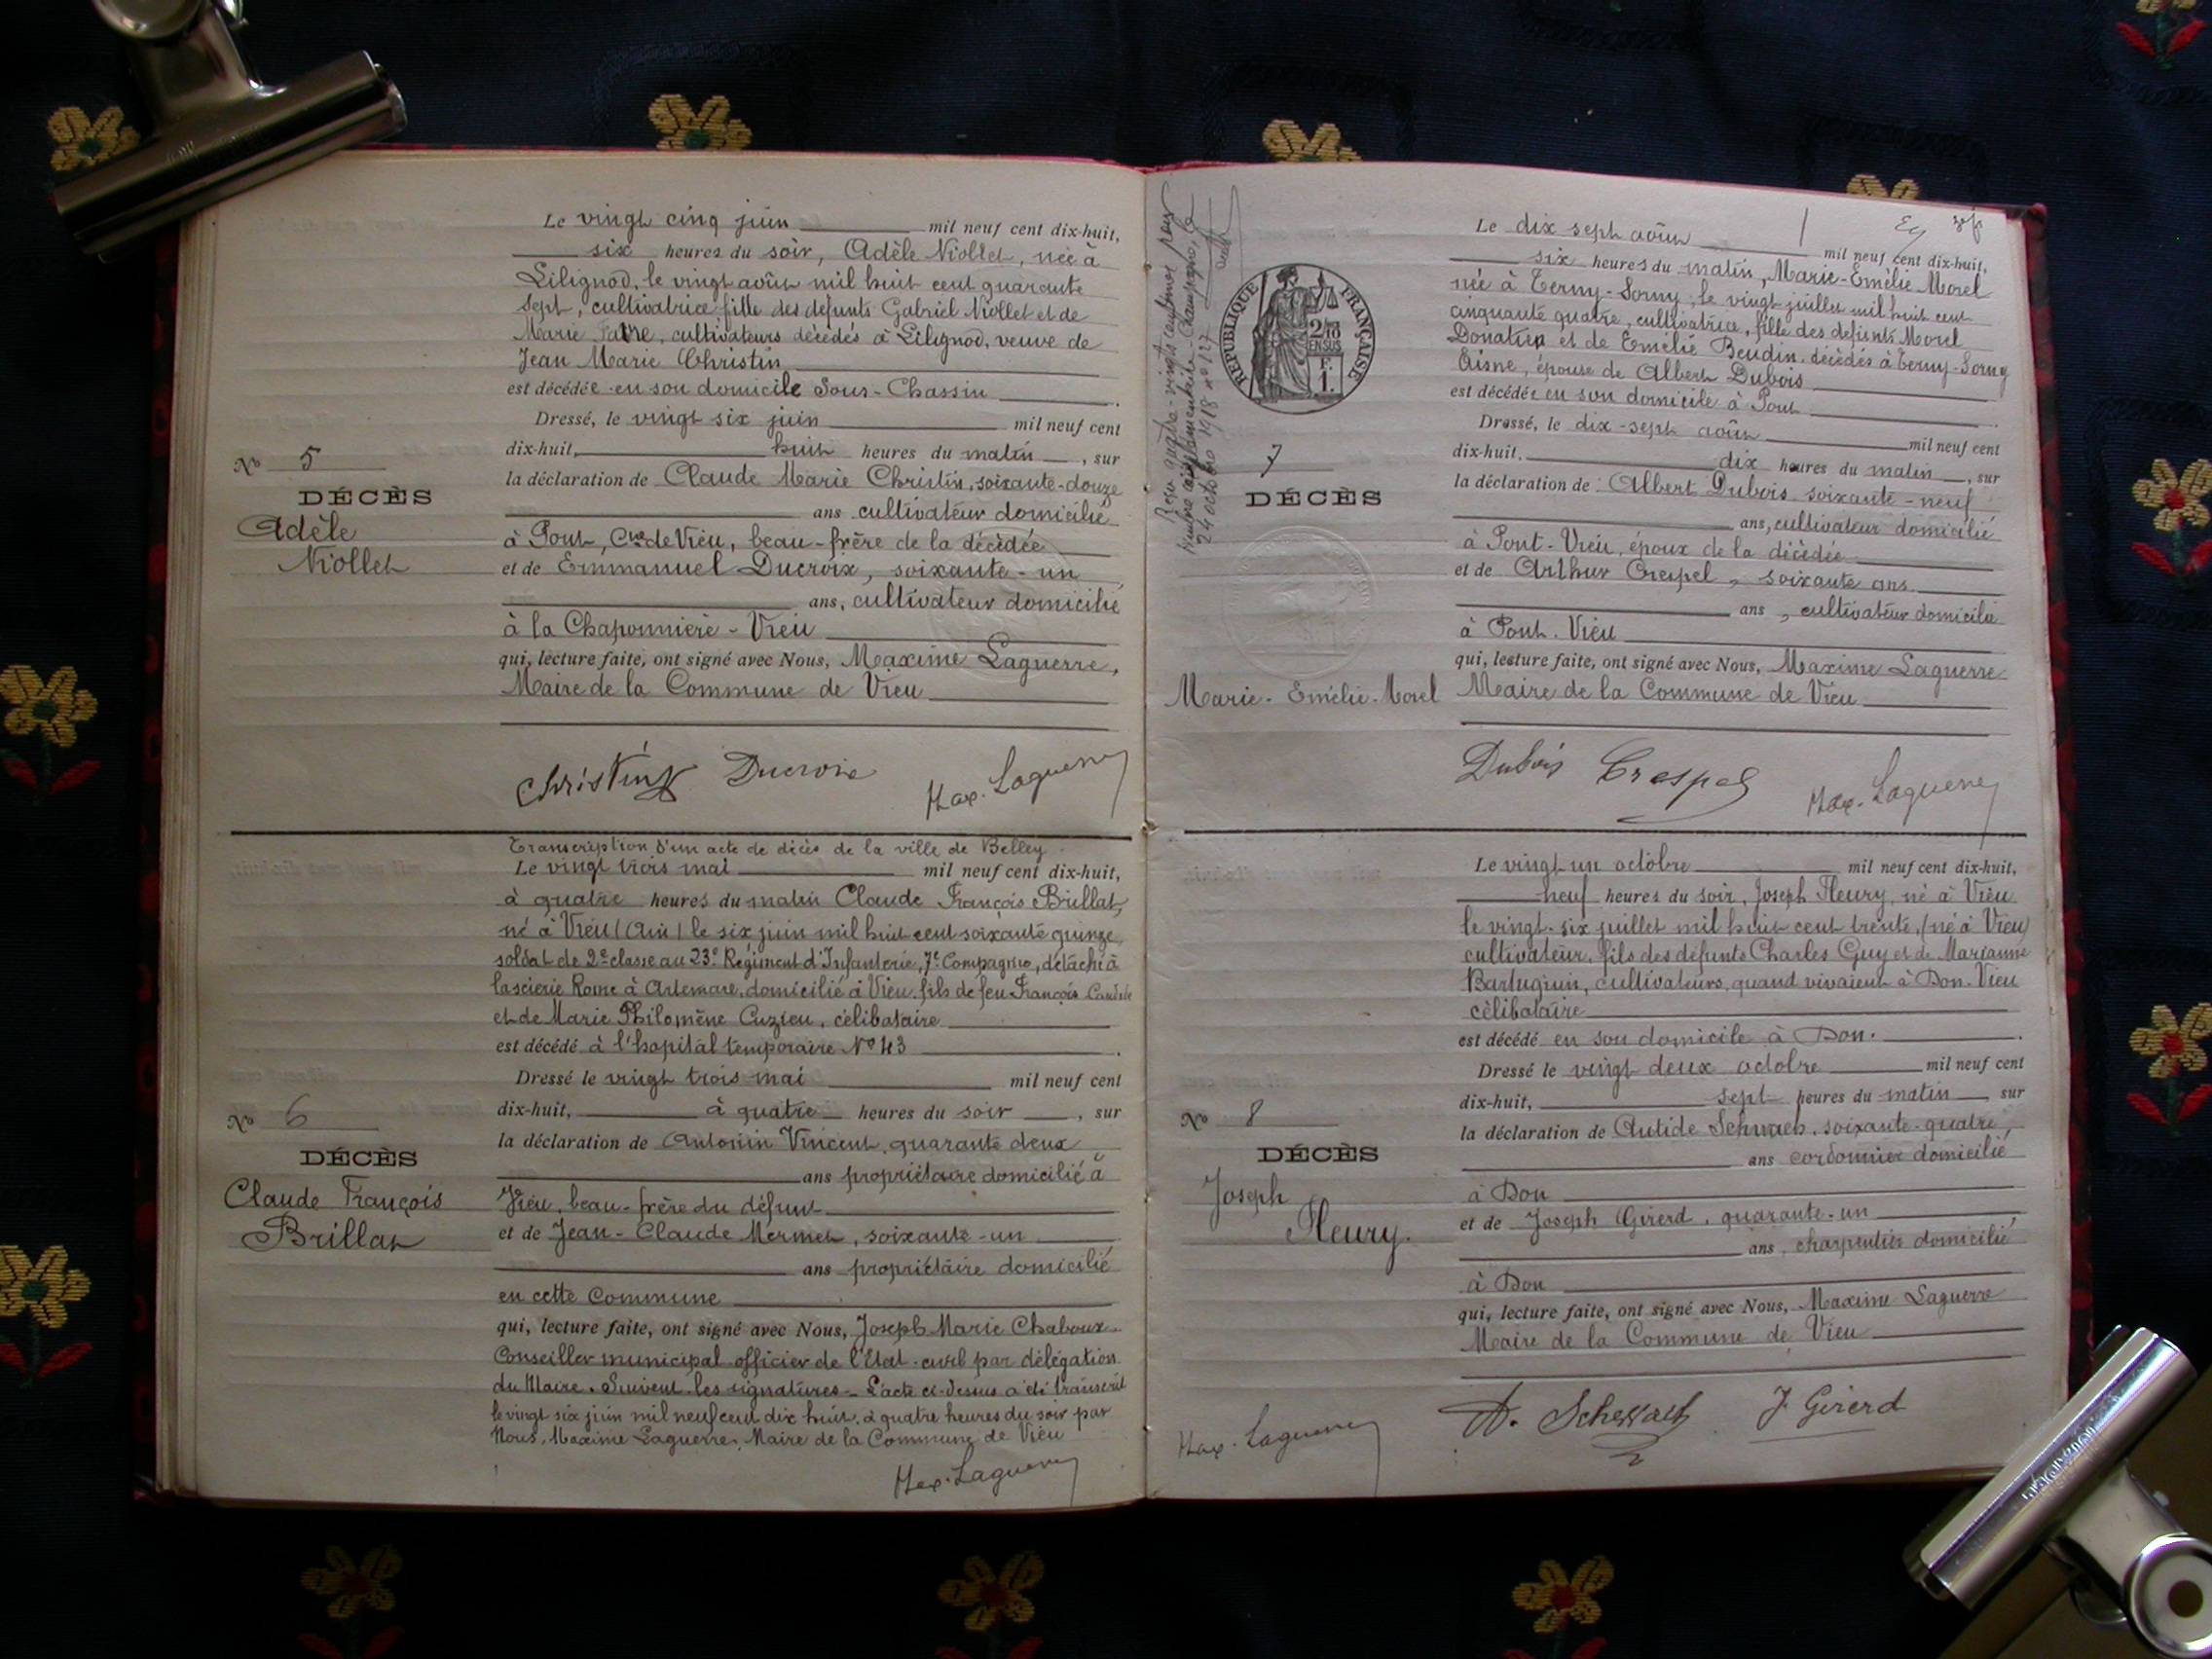 Le vingt cinq juin mil neuf cent dix-huit,
six heures du soir, Adèle Niollet, née à
Lilignod, le vingt août mil huit cent quarante
sept, cultivatrice fille des défunts Gabriel Niollet et de
Marie cultivateurs décédés à Lilignod, veuve de
Jean Marie Christin
est décédée en son domicile Sous-Chassin
Dressé, le vingt six juin mil neuf cent
dix-huit, huit heures du matin, sur
la déclaration de Claude Marie Christin, soixante-douze
ans cultivateur domicilié
à Pont, Cne de Vieu, beau-frère de la décédée
et de Emmanuel Ducroix, soixante-un
ans, cultivateur domicilié
à la Chaponnière - Vieu
qui, lecture faite, ont signé avec Nous, Maxime Laguerre,
Maire de la Commune de Vieu
No 5
DÉCÈS
Adèle
Niollet
Christin Ducroix Max. Laguerre
Transcription d'un acte de décès de la ville de Belley.
Le vingt trois mai mil neuf cent dix-huit,
à quatre heures du matin Claude François Brillat,
né à Vieu (Ain) le six juin mil huit cent soixante quinze,
soldat de 2e classe au 23e Régiment d'Infanterie, 7e Compagnie, détaché à
la scierie Rome à Artemare, domicilié à Vieu, fils de feu François
et de Marie Philomène Cuzieu, célibataire
est décédé à l'hopital temporaire No 43
Dressé le vingt trois mai mil neuf cent
dix-huit, à quatre heures du soir, sur
la déclaration de Antonin Vincent, quarante deux
ans propriétaire domicilié à
Vieu, beau-frère du défunt
et de Jean-Claude Mermet, soixante-un
ans propriétaire domicilié
en cette Commune
qui, lecture faite, ont signé avec Nous, Joseph Marie Chaboux
Conseiller municipal officier de l'Etat-civil par délégation
du Maire. Suivent les signatures - L'acte ci-dessus a été transcrit
le vingt six juin mil neuf cent dix huit, à quatre heures du soir par
Nous, Maxime Laguerre, Maire de la Commune de Vieu
No 6
DÉCÈS
Claude François
Brillat
Max. Laguerre
Le dix sept août mil neuf cent dix-huit,
six heures du matin, Marie-Emélie Morel
née à Terny-Sorny, le vingt juillet mil huit cent
cinquante quatre, cultivatrice, fille des défunts Morel
Donatien et de Emélie Beudin, décédés à Terny-Sorny
Aisne, épouse de Albert Dubois
est décédée en son domicile à Pont
Dressé, le dix-sept août mil neuf cent
dix-huit, dix heures du matin, sur
la déclaration de Albert Dubois soixante-neuf
ans, cultivateur domicilié
à Pont-Vieu, époux de la décédée
et de Arthur Crespel, soixante ans
ans, cultivateur domicilié
à Pont. Vieu
qui, lecture faite, ont signé avec Nous, Maxime Laguerre
Maire de la Commune de Vieu
RÉPUBLIQUE FRANÇAISE
7
DÉCÈS
Marie-Emélie-Morel
Dubois Crespel Max. Laguerre
Le vingt un octobre mil neuf cent dix-huit,
neuf heures du soir, Joseph Fleury, né à Vieu
le vingt-six juillet mil huit cent trente, (né à Vieu)
cultivateur, fils des défunts Charles Guy et de Marianne
cultivateurs, quand vivaient à Don-Vieu
célibataire
est décédé en son domicile à Don.
Dressé le vingt deux octobre mil neuf cent
dix-huit, sept heures du matin, sur
la déclaration de Antide Schwach, soixante-quatre,
ans cordonnier domicilié
à Don
et de Joseph Girerd, quarante-un
ans, charpentier domicilié
à Don
qui, lecture faite, ont signé avec Nous, Maxime Laguerre
Maire de la Commune de Vieu
No 8
DÉCÈS
Joseph
Fleury.
Max. Laguerre J. Girerd